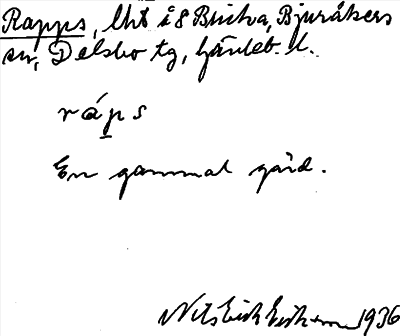 Rapps, lht å 8 Bricka, Bjuråkers
sn, Delsbo tg, Gävleb. l.
ráps
En gammal gård.
Nils Erik Eriksson 1936